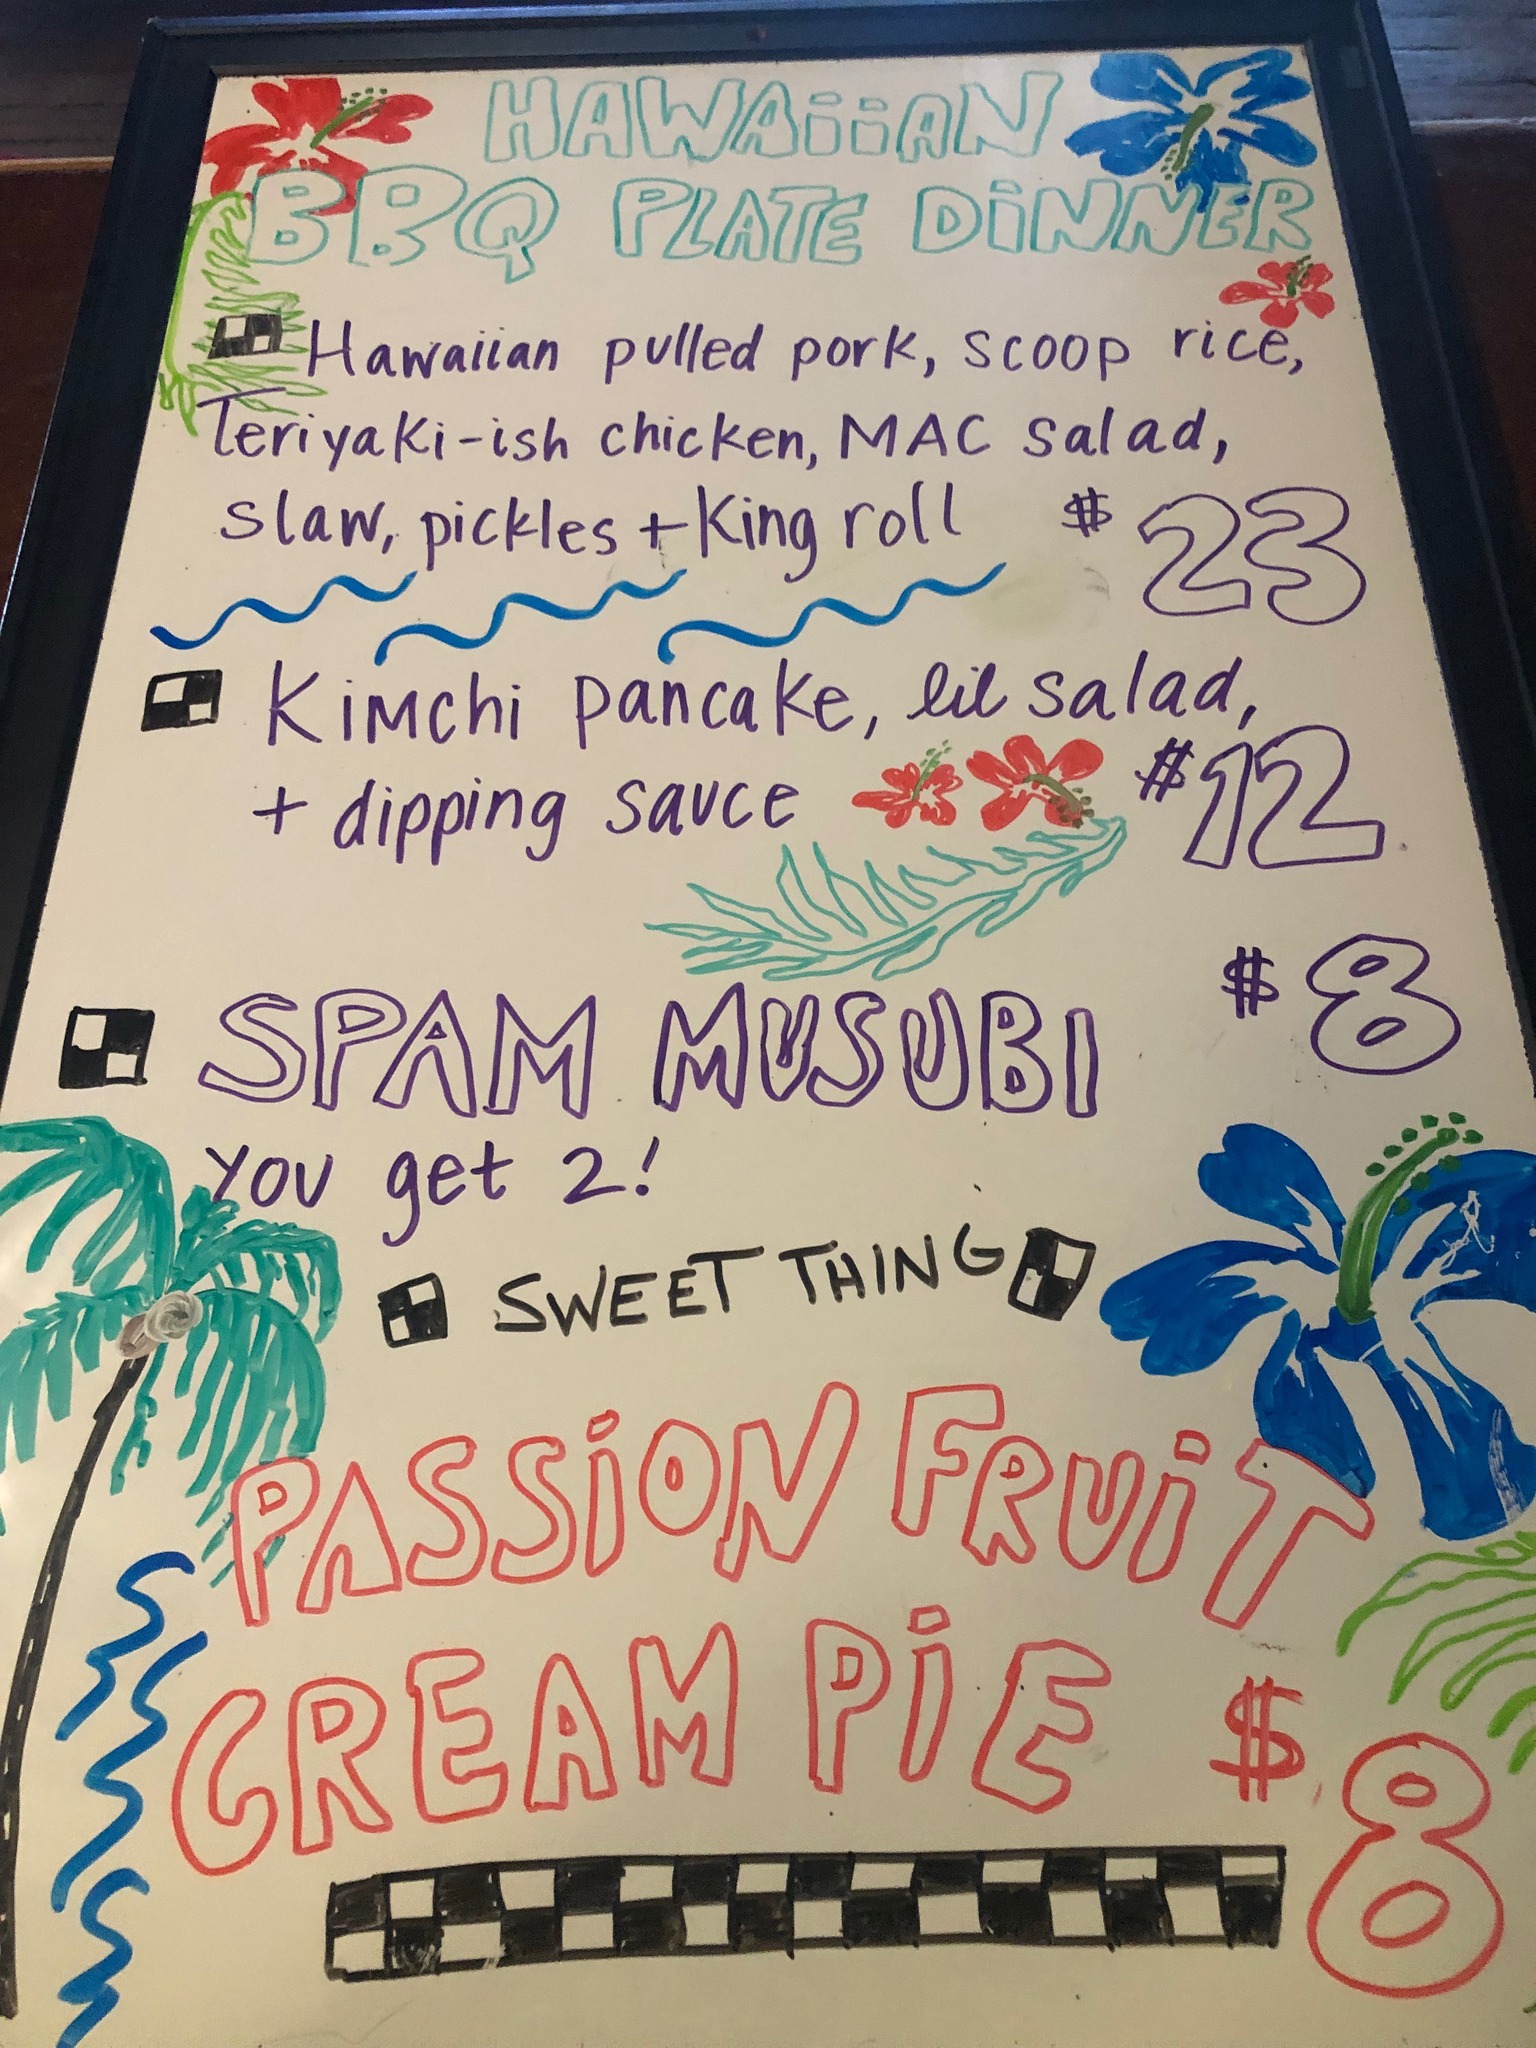 HAWAiiAN
BBQ PLATE DiNNER
Hawaiian pulled pork, scoop rice,
Teriyaki-ish chicken, MAC salad,
slaw, pickles + King roll $23
Kimchi pancake, lil salad,
+ dipping sauce $12
SPAM MUSUBI $8
you get 2!
SWEET THING
PASSiON FRUiT
CREAM PiE $8